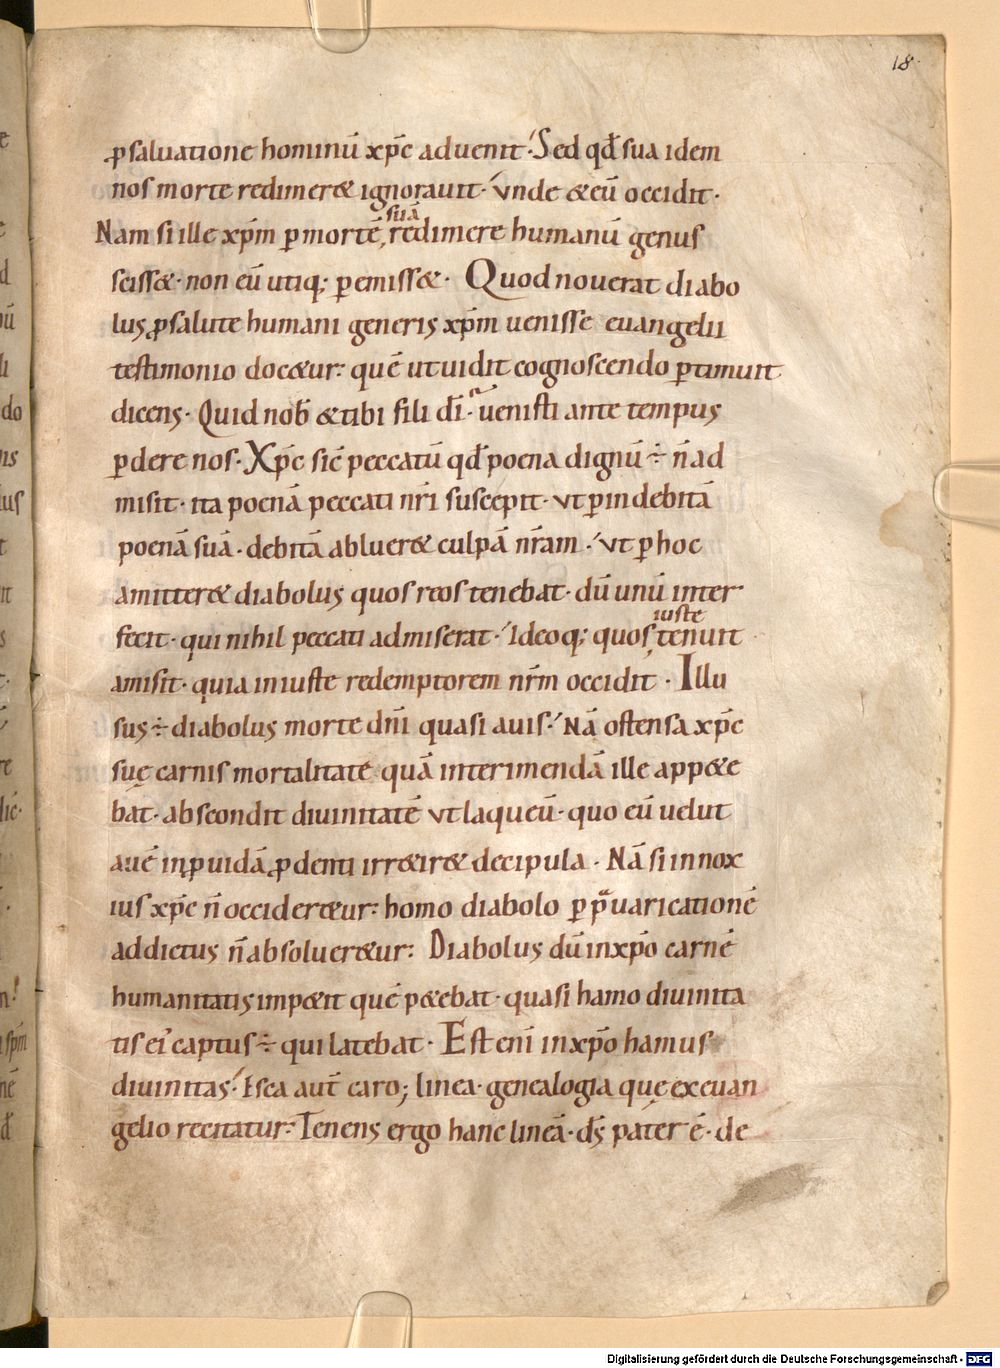 18
ꝓsaluatione hominū xp̄c aduenit. Sed qd̄ sua idem
nos morte redimer& ignorauit. Vnde & eū occidit.
suā
Nam si ille xp̄m ꝑ mortē, redimere humanū genus
sciss&. non eū utiq; ꝑemiss&. Quod nouerat diabo
lus ꝓsalute humani generis xp̄m uenisse euangelii
testimonio doc&ur: quē ut uidit cognoscendo ꝑtimuit
dicens. Quid nob̄ & tibi fili dī. uenisti ante tempus
ꝑdere nos. Xp̄c sic̄ peccatū qd̄ poena dignū ÷ n̄ ad
misit. ita poenā peccati nr̄i suscepit. vt ꝑ indebitā
poenā suā. debitā abluer& culpā nr̄am. vt ꝑ hoc
amitter& diabolus quos reos tenebat. dū unū inter
iuste
fecit. qui nihil peccati admiserat. Ideoq; quos, tenuit
amisit. quia iniuste redemptorem nr̄m occidit. Illu
sus ÷ diabolus morte dn̄i quasi auis. Nā ostensa xp̄c
suę carnis mortalitate quā interimendā ille app&e
bat. abscondit diuinitatē vt laqueū. quo eū uelut
auē inꝓuidā ꝓdenti irr&ir& decipula. Nā si innox
ius xp̄c n̄ occider&ur: homo diabolo ꝑ p̄uaricationē
addictus n̄ absoluer&ur: Diabolus dū in xp̄o carnē
humanitatis imp&it quē p&ebat. quasi hamo diuinita
tis ei' captus ÷ qui latebat. Est enī in xp̄o hamus
diuinitas. Esca aut̄ caro; linea. genealogia quę ex euan
gelio recitatur. Tenens ergo hanc lineā. ds̄ pater ē. de
Digitalisierung gefördert durch die Deutsche Forschungsgemeinschaft - DFG